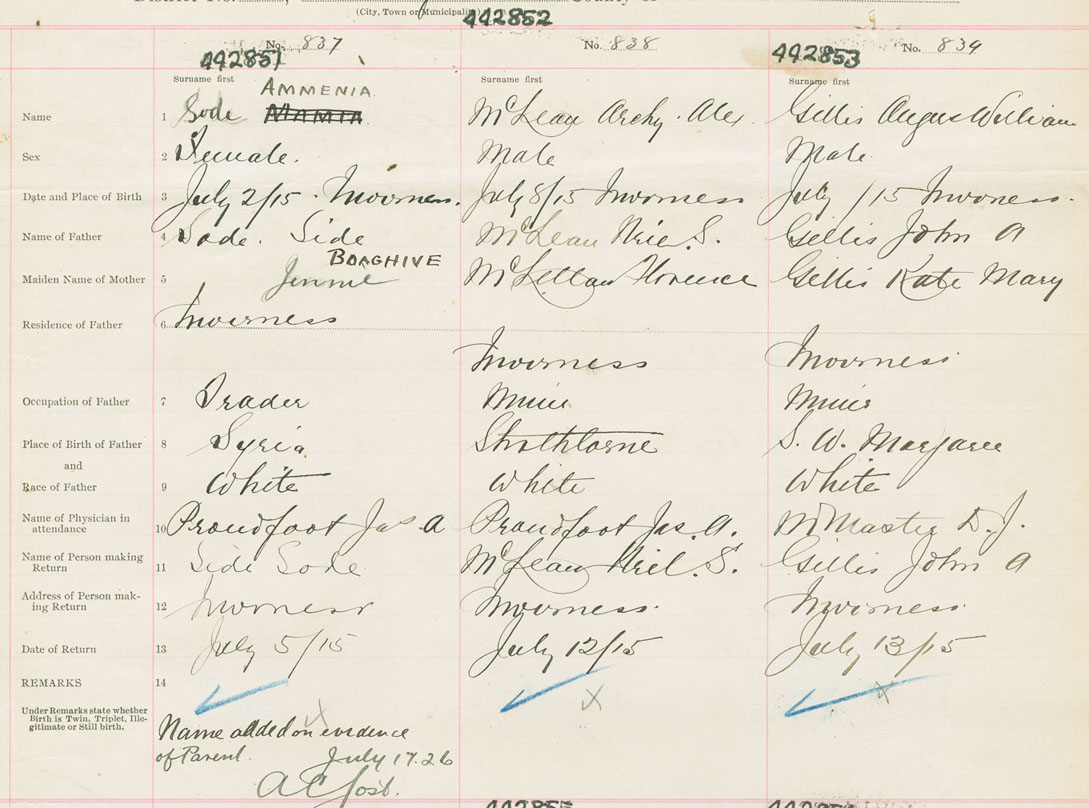 (City, Town or Municipality)
442852
No. 837 No. 838 No. 839
442851 442853
Surname first Surname first Surname first
AMMENIA
Name 1 Sode MAMIA McLean Archy. Alex. Gillis Angus William
Sex 2 Female. Male Male.
Date and Place of Birth 3 July 2/15. Inverness. July 8/15 Inverness July /15 Inverness.
Name of Father 4 Sode. Side McLean S. Gillis John A
BOAGHIVE
Maiden Name of Mother 5 Jennie McLellan Florence Gillis Kate Mary
Residence of Father 6 Inverness
Inverness Inverness
Occupation of Father 7 Trader Miner Miner
Place of Birth of Father 8 Syria Strathlorne S. W. Margaree
and
Race of Father 9 White White White
Name of Physician in
attendance 10 Proudfoot Jas A Proudfoot Jas. A. McMaster D. J.
Name of Person making
Return 11 Side Sode McLean S. Gillis John A
Address of Person mak-
ing Return 12 Inverness Inverness. Inverness.
Date of Return 13 July 5/15 July 12/15 July 13/15
REMARKS 14
X X X
Under Remarks state whether
Birth is Twin, Triplet, Ille-
gitimate or Still birth.
Name added on evidence
of Parent. July 17.26
A C Jost.